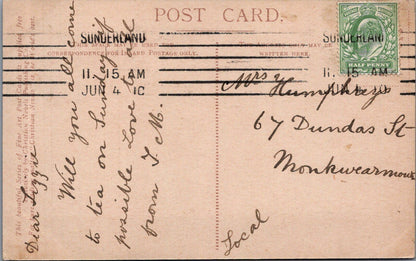 POST CARD.
SUNDERLAND
11. 15 AM
JUN 4 10
SUNDERLAND
11. 15 AM
HALF PENNY
CORRESPONDENCE FOR INLAND POSTAGE ONLY.
MAY BE
WRITTEN HERE.
Dear Lizzie
Will you all come
to tea on Sunday if
possible Love all
from J M.
Mrs Humphreys
67 Dundas St
Monkwearmouth
Local